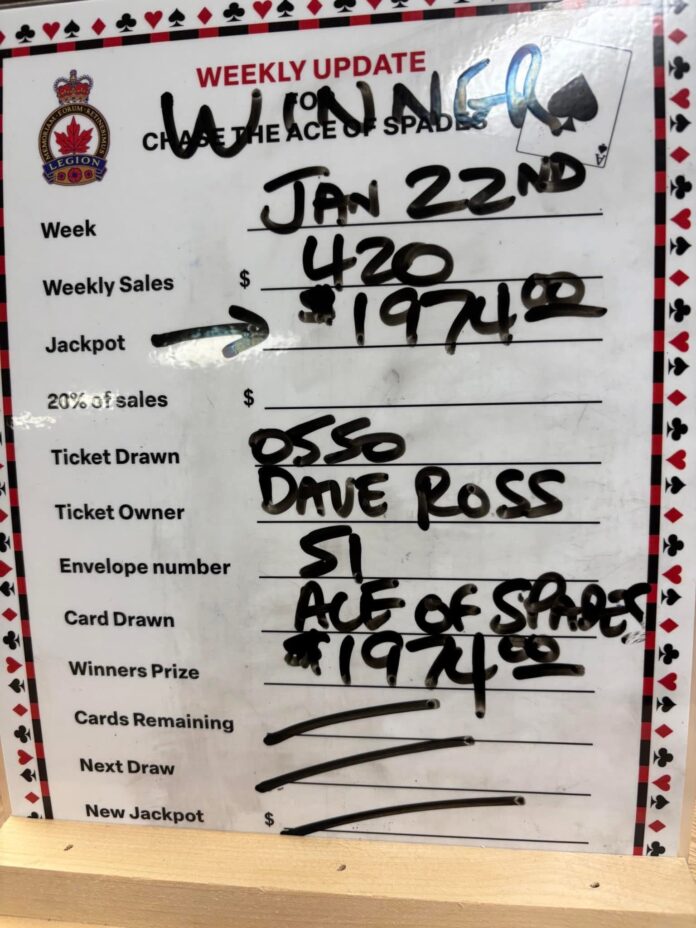 WEEKLY UPDATE
FOR
CHASE THE ACE OF SPADES
WINNER
MEMORIAM·FORUM·RETINEBIMUS
LEGION
A
Week JAN 22ND
Weekly Sales $ 420
Jackpot → $1974.00
20% of sales $
Ticket Drawn 0550
Ticket Owner DAVE ROSS
Envelope number 51
Card Drawn ACE OF SPADES
Winners Prize $1974.00
Cards Remaining
Next Draw
New Jackpot $